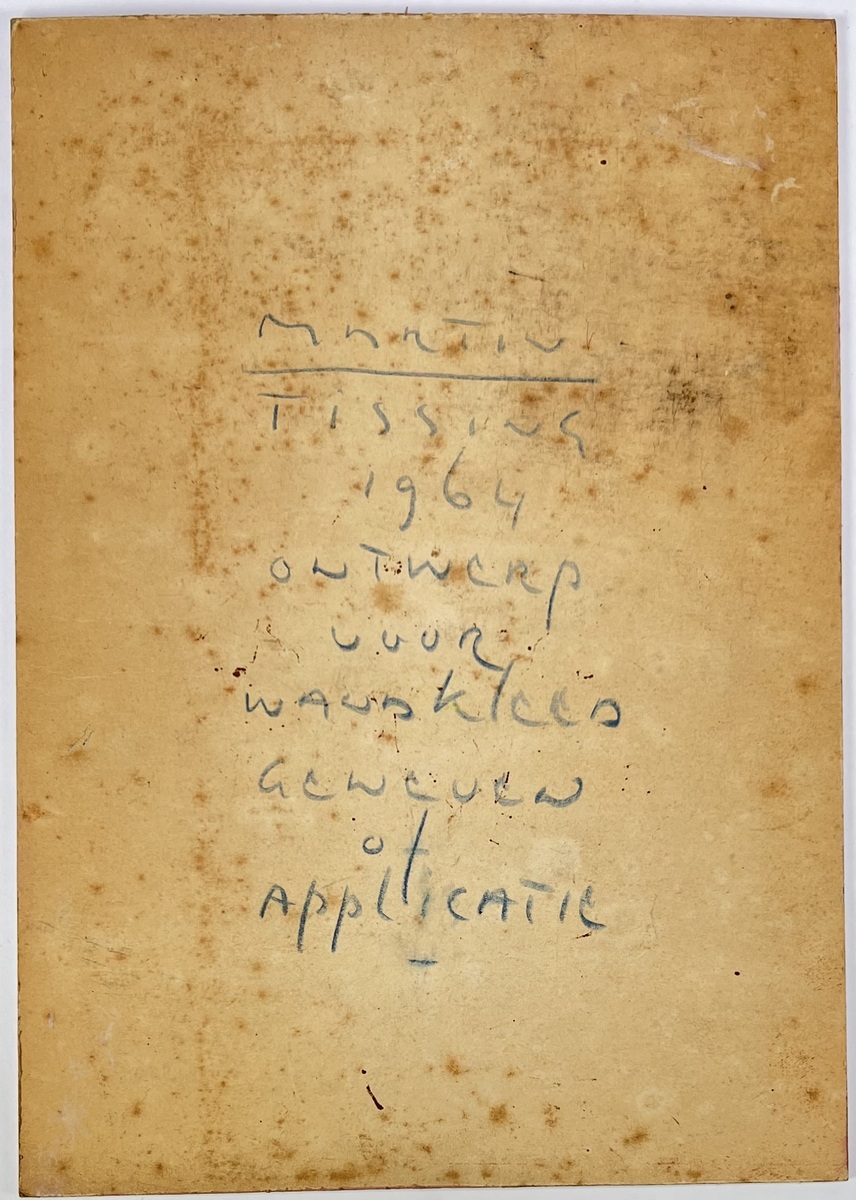 MARTIN
TISSING
1964
ONTWERP
VOOR
WANDKLEED
GEWEVEN
of
APPLICATIE